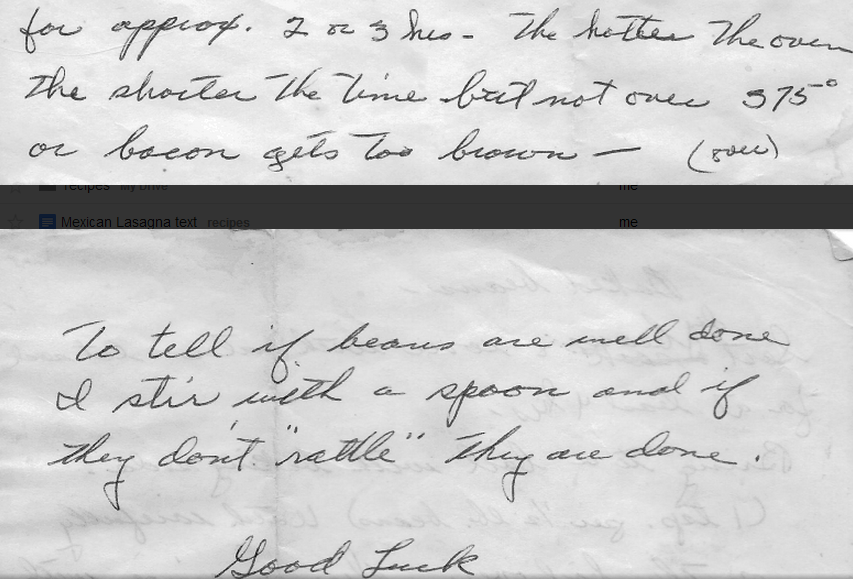 for approx. 2 or 3 hrs - The hotter The oven
The shorter The Time but not over 375°
or bacon gets Too brown — (over)
recipes My Drive me
Mexican Lasagna text recipes me
To tell if beans are well done
I stir with a spoon and if
they don't "rattle" They are done.
Good Luck